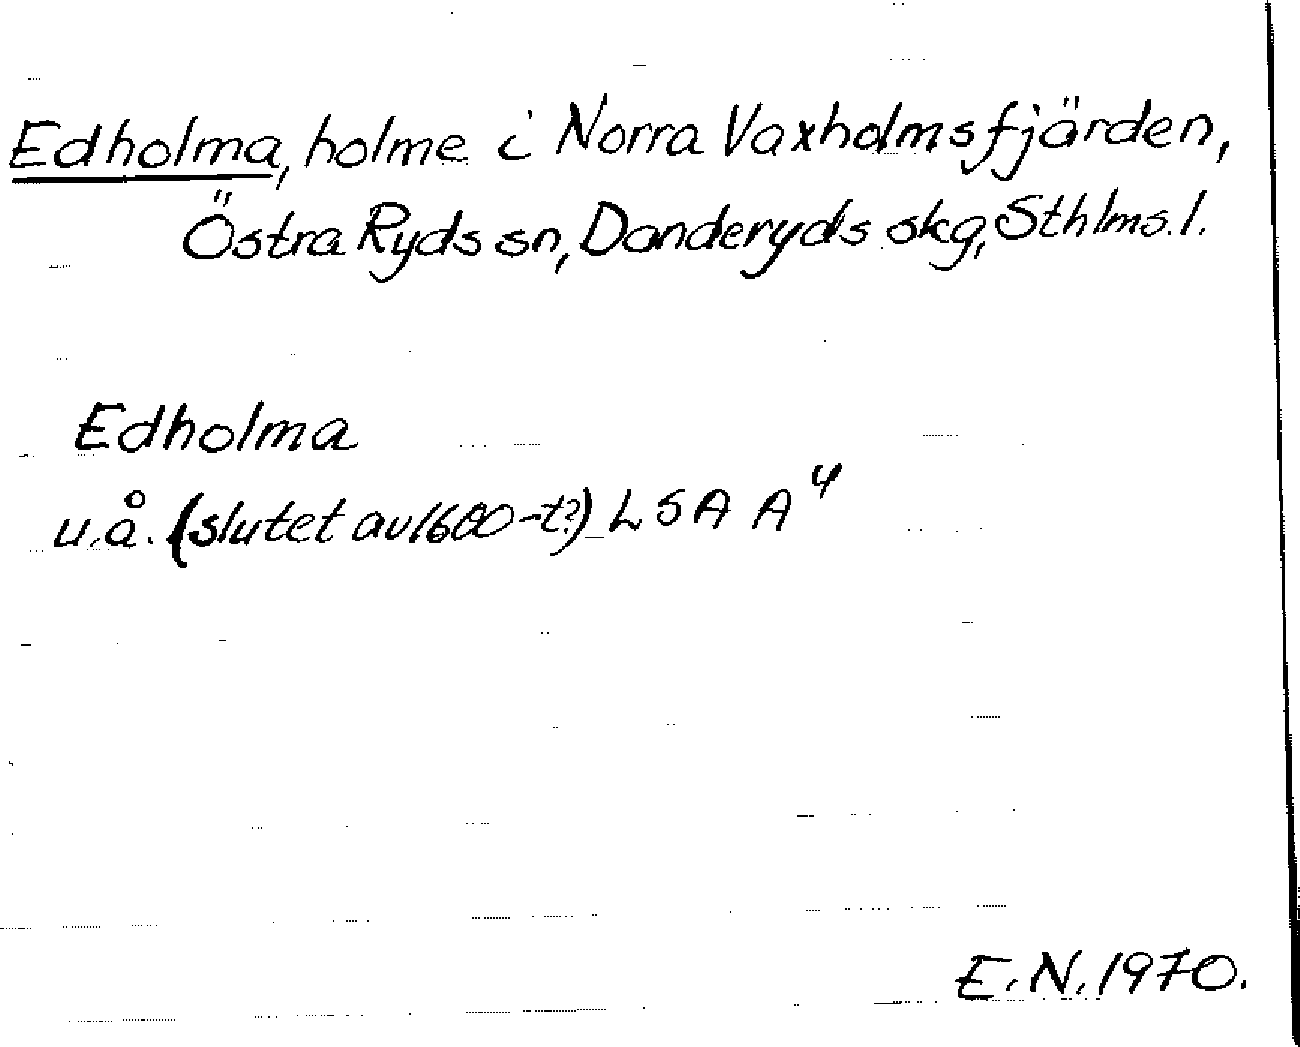 Edholma, holme i Norra Vaxholmsfjärden,
Östra Ryds sn, Danderyds skg, Sthlms. l.
Edholma
u.å. (slutet av 1600-t?) LSA A⁴
E.N. 1970.